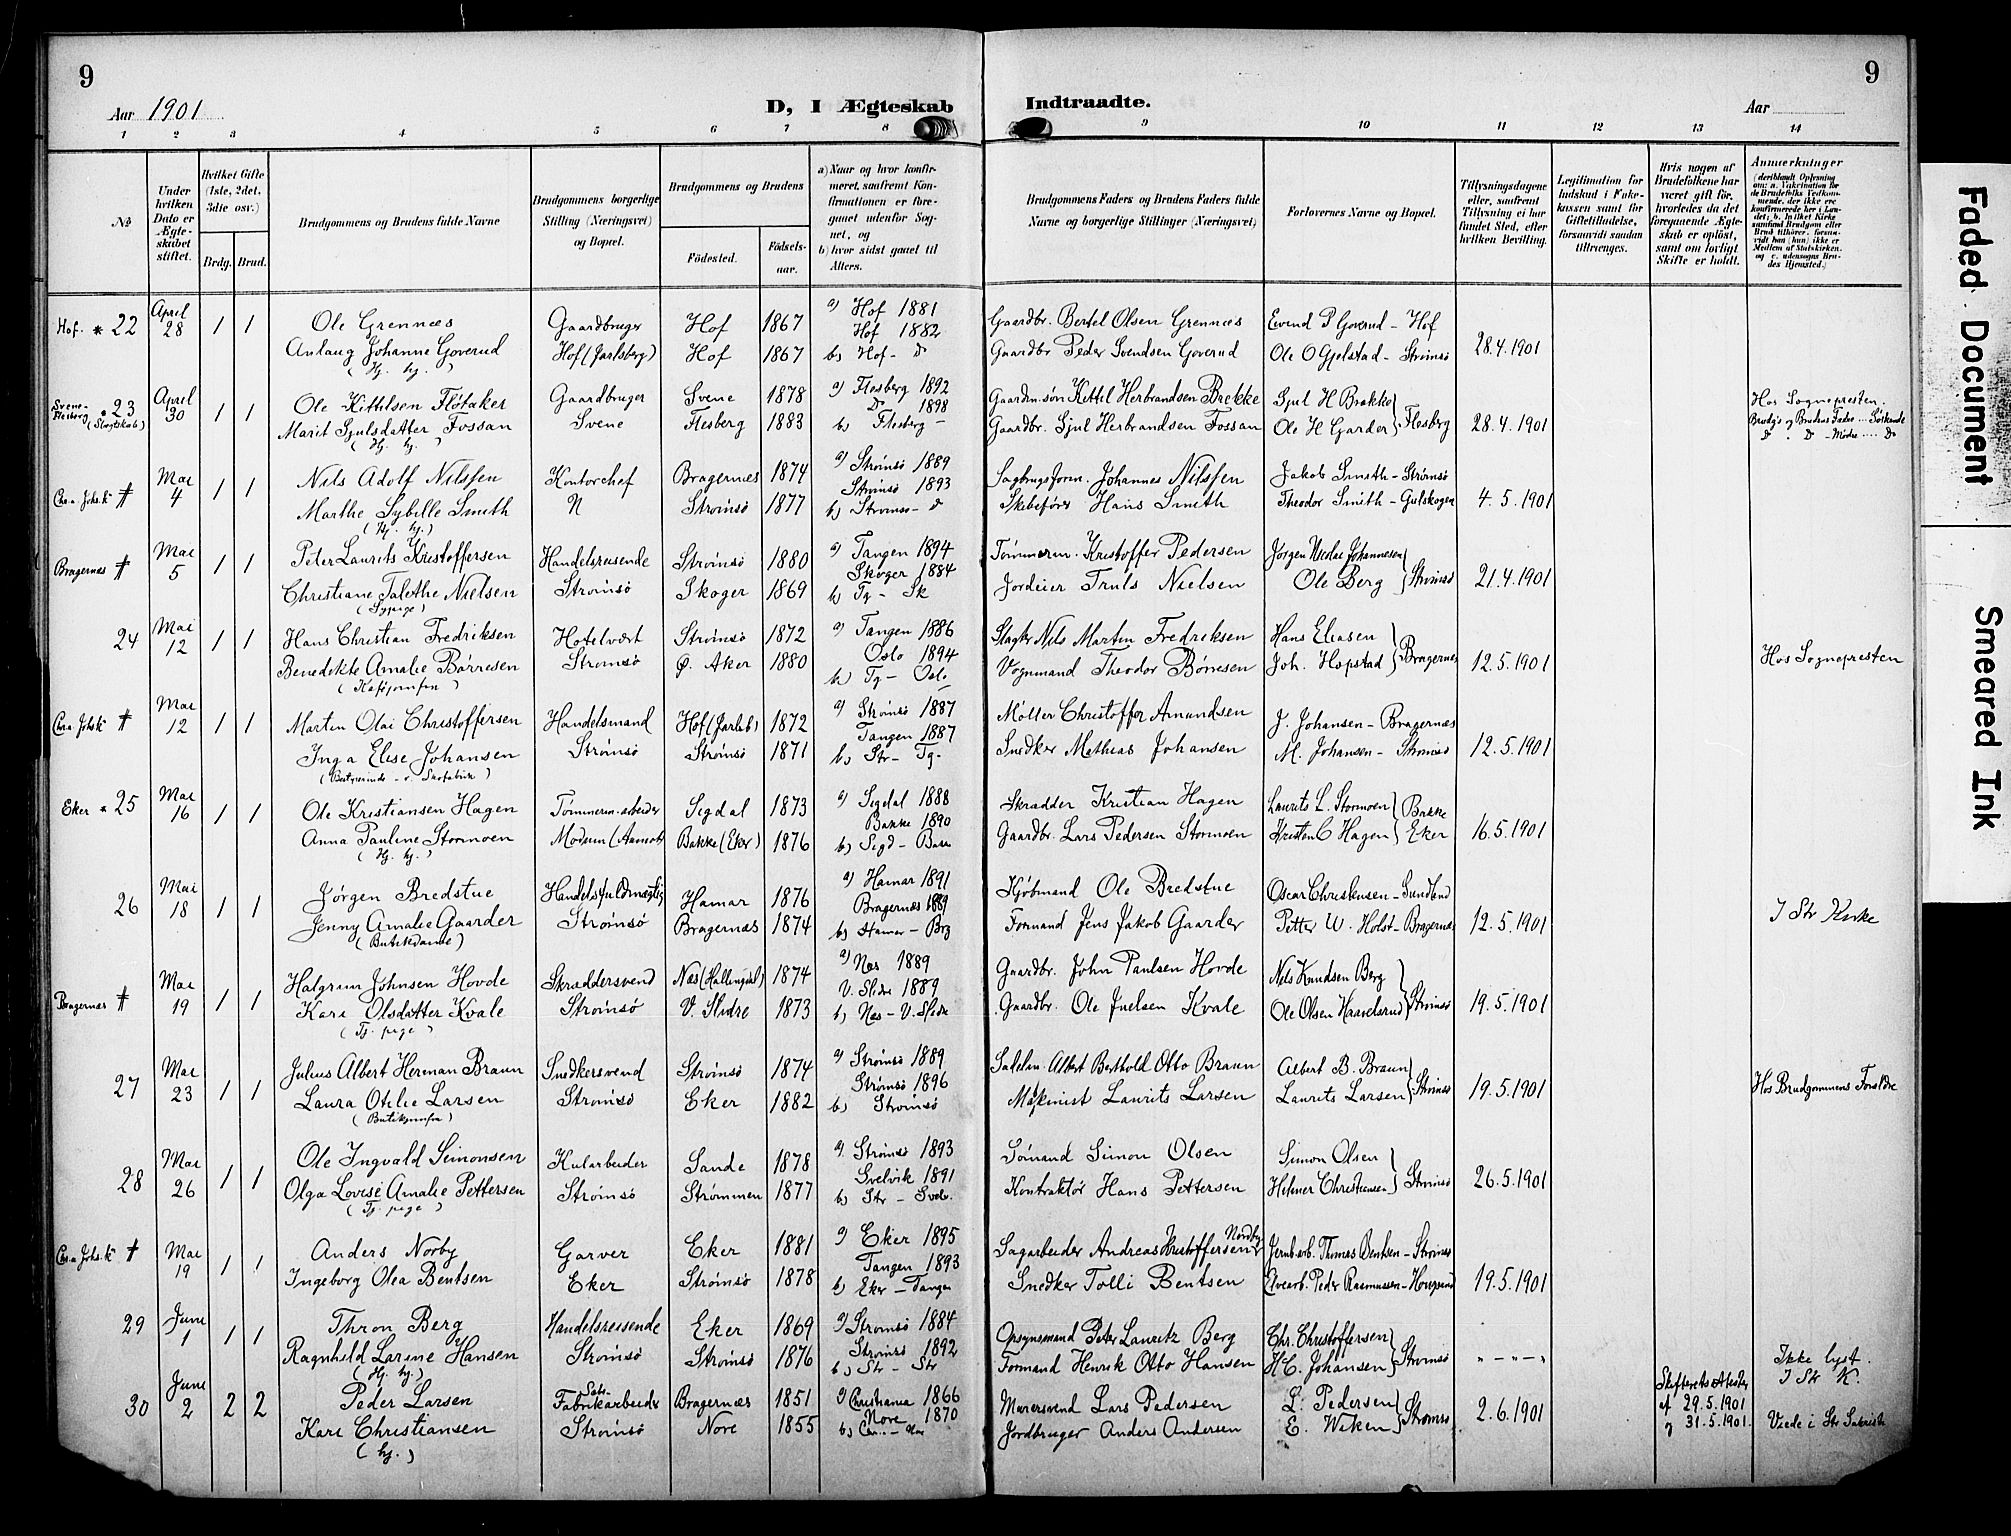 9
9
Aar 1901
D, I Ægteskab
Indtraadte.
Aar
1 2 3 4 5 6 7 8 9 10 11 12 13 14
No
Under hvilken Dato er Ægteskabet stiftet.
Hvilket Gifte (1ste, 2det, 3die osv.)
Brdg. Brud.
Brudgommens og Brudens fulde Navne
Brudgommens borgerlige Stilling (Næringsvei) og Bopæl.
Brudgommens og Brudens
Fødested.
Fødselsaar.
a) Naar og hvor konfirmeret, saafremt Konfirmationen er foregaaet udenfor Sognet, og
b) hvor sidst gaaet til Alters.
Brudgommens Faders og Brudens Faders fulde Navne og borgerlige Stillinger (Næringsvei)
Forlovernes Navne og Bopæl.
Tillysningsdagene eller, saafremt Tillysning ei har fundet Sted, efter hvilken Bevilling.
Legitimation for Indskud i Enkekassen samt for Giftetilladelse, forsaavidt saadan tiltrænges.
Hvis nogen af Brudefolkene har været gift før, hvorledes da det foregaaende Ægteskab er opløst, samt om lovligt Skifte er holdt.
Anmerkninger
Hof. * 22 April 28 1 1 Ole Grennæs Gaardbruger Hof 1867 a) Hof 1881 Gaardbr. Bertel Olsen Grennæs Eivind P Goverud - Hof
Anlaug Johanne Goverud Hof (Jarlsberg) Hof 1867 Hof 1882 b) Hof - Gaardbr Peder Svendsen Goverud Ole O Gjelstad - Strømsø 28.4.1901
(Hj. hj.)
Svene-Flesberg 23 (Slægtskab) April 30 1 1 Ole Kittilsen Fløtaker Gaardbruger Svene 1878 a) Flesberg 1892 Kittil Herbrandsen Brekke Hos Sognepresten.
Marit Gjulsdatter Fossan Svene Flesberg 1883 Do 1898 b) Flesberg - Gaardbr. Gjul Herbrandsen Fossan Ole H Garder Flesberg 28.4.1901
(Hj. hj.)
# Mai 4 1 1 Nils Adolf Nilssen Kontorchef Bragernæs 1874 a) Strømsø 1889 Johannes Nilssen Jakob Smith - Strømsø
Marthe Sybille Smith N Strømsø 1877 Strømsø 1893 b) Strømsø - Skibsfører Hans Smith Theodor Smith - Gulskogen 4.5.1901
(Hj. hj.)
Bragernæs # Mai 5 1 1 Peter Laurits Kristoffersen Handelsreisende Strømsø 1880 a) Tangen 1894 Tømmerm. Kristoffer Pedersen Jørgen Nicolai Johannesen
Christiane Talethe Nielsen Strømsø Skoger 1869 Skoger 1884 b) Tg - Sk Jordeier Truls Nielsen Ole Berg Strømsø 21.4.1901
(Sypige)
24 Mai 12 1 1 Hans Christian Fredriksen Hotelvært Strømsø 1872 a) Tangen 1886 Nils Martin Fredriksen Hans Eliasen
Benedikte Amalie Børresen Strømsø Ø. Aker 1880 Oslo 1894 b) Tg - Oslo Vognmand Theodor Børresen Joh. Hopstad Bragernæs 12.5.1901 Hos Sognepresten
# Mai 12 1 1 Martin Olai Christoffersen Handelsmand Hof (Jarlsb) 1872 a) Strømsø 1887 Møller Christoffer Amundsen J. Johansen - Bragernæs
Inga Elise Johansen Strømsø Strømsø 1871 Tangen 1887 b) Str - Tg. Snedker Mathias Johansen M. Johansen - Strømsø 12.5.1901
Eker * 25 Mai 16 1 1 Ole Kristiansen Hagen Sigdal 1873 a) Sigdal 1888 Skrædder Kristian Hagen Laurits L. Stormoen Bakke
Anna Pauline Stormoen Modum Bakke (Eker) 1876 Bakke 1890 b) Sigd - Gaardbr. Lars Pedersen Stormoen Kristen C Hagen Eker 16.5.1901
(Hj. hj.)
26 Mai 18 1 1 Jørgen Bredstue Handelsfuldmægtig Hamar 1876 a) Hamar 1891 Kjøbmand Ole Bredstue Oscar Christensen - Sundland
Jenny Amalie Gaarder Strømsø Bragernæs 1874 Bragernæs 1889 b) Hamar - Brg Formand Jens Jakob Gaarder Petter W. Holst - Bragernæs 12.5.1901 I Str Kirke
(Butikdame)
Bragernæs # Mai 19 1 1 Halgrim Johnsen Hovde Skræddersvend Næs (Hallingdal) 1874 a) Næs 1889 Gaardbr. John Paulsen Hovde Nils Knudsen Berg
Kari Olsdatter Kvale Strømsø V. Slidre 1873 V. Slidre 1889 b) Næs - V. Slidre Gaardbr. Ole Juelsen Kvale Ole Olsen Haavelsrud Strømsø 19.5.1901
(Tj. pige)
27 Mai 23 1 1 Julius Albert Herman Braun Snedkersvend Strømsø 1874 a) Strømsø 1889 Albert Berthold Otto Braun Albert B. Braun
Laura Otilie Larsen Strømsø Eker 1882 Strømsø 1896 b) Strømsø Maskinist Laurits Larsen Laurits Larsen Strømsø 19.5.1901 Hos Brudgommens Forældre
28 Mai 26 1 1 Ole Ingvald Simonsen Kularbeider Sande 1878 a) Strømsø 1893 Sømand Simon Olsen Simon Olsen
Olga Lovise Amalie Pettersen Strømsø Strømmen 1877 Svelvik 1891 b) Str - Svelv. Kontraktør Hans Pettersen Helmer Christensen Strømsø 26.5.1901
(Tj. pige)
Mai 19 1 1 Anders Norby Garver Eker 1881 a) Eker 1895 Sagarbeider Andreas Kristoffersen Nordby Thomas Bentsen - Strømsø
Ingeborg Olea Bentsen Eker Strømsø 1878 Tangen 1893 b) Eker - Tangen Snedker Tolli Bentsen Peder Rasmussen 19.5.1901
29 Juni 1 1 1 Thron Berg Handelsreisende Eker 1869 a) Strømsø 1884 Opsynsmand Peter Lauritz Berg Chr. Christoffersen
Ragnhild Larine Hansen Strømsø Strømsø 1876 Strømsø 1892 b) Str - Str Formand Henrik Otto Hansen H.C. Johansen Strømsø " - " - " Ikke lyst. I Str K.
(Hj. hj.)
30 Juni 2 2 2 Peder Larsen Fabrikarbeider Bragernæs 1851 a) Christiania 1866 Murersvend Lars Pedersen L. Pedersen Skifterets Atester af 29.5.1901
Kari Christiansen Strømsø Nore 1855 Nore 1870 Jordbruger Anders Andersen E. Wiken Strømsø 2.6.1901 og 31.5.1901. Viede i Str Sakristi
(hj.)
Faded Document
Smeared Ink